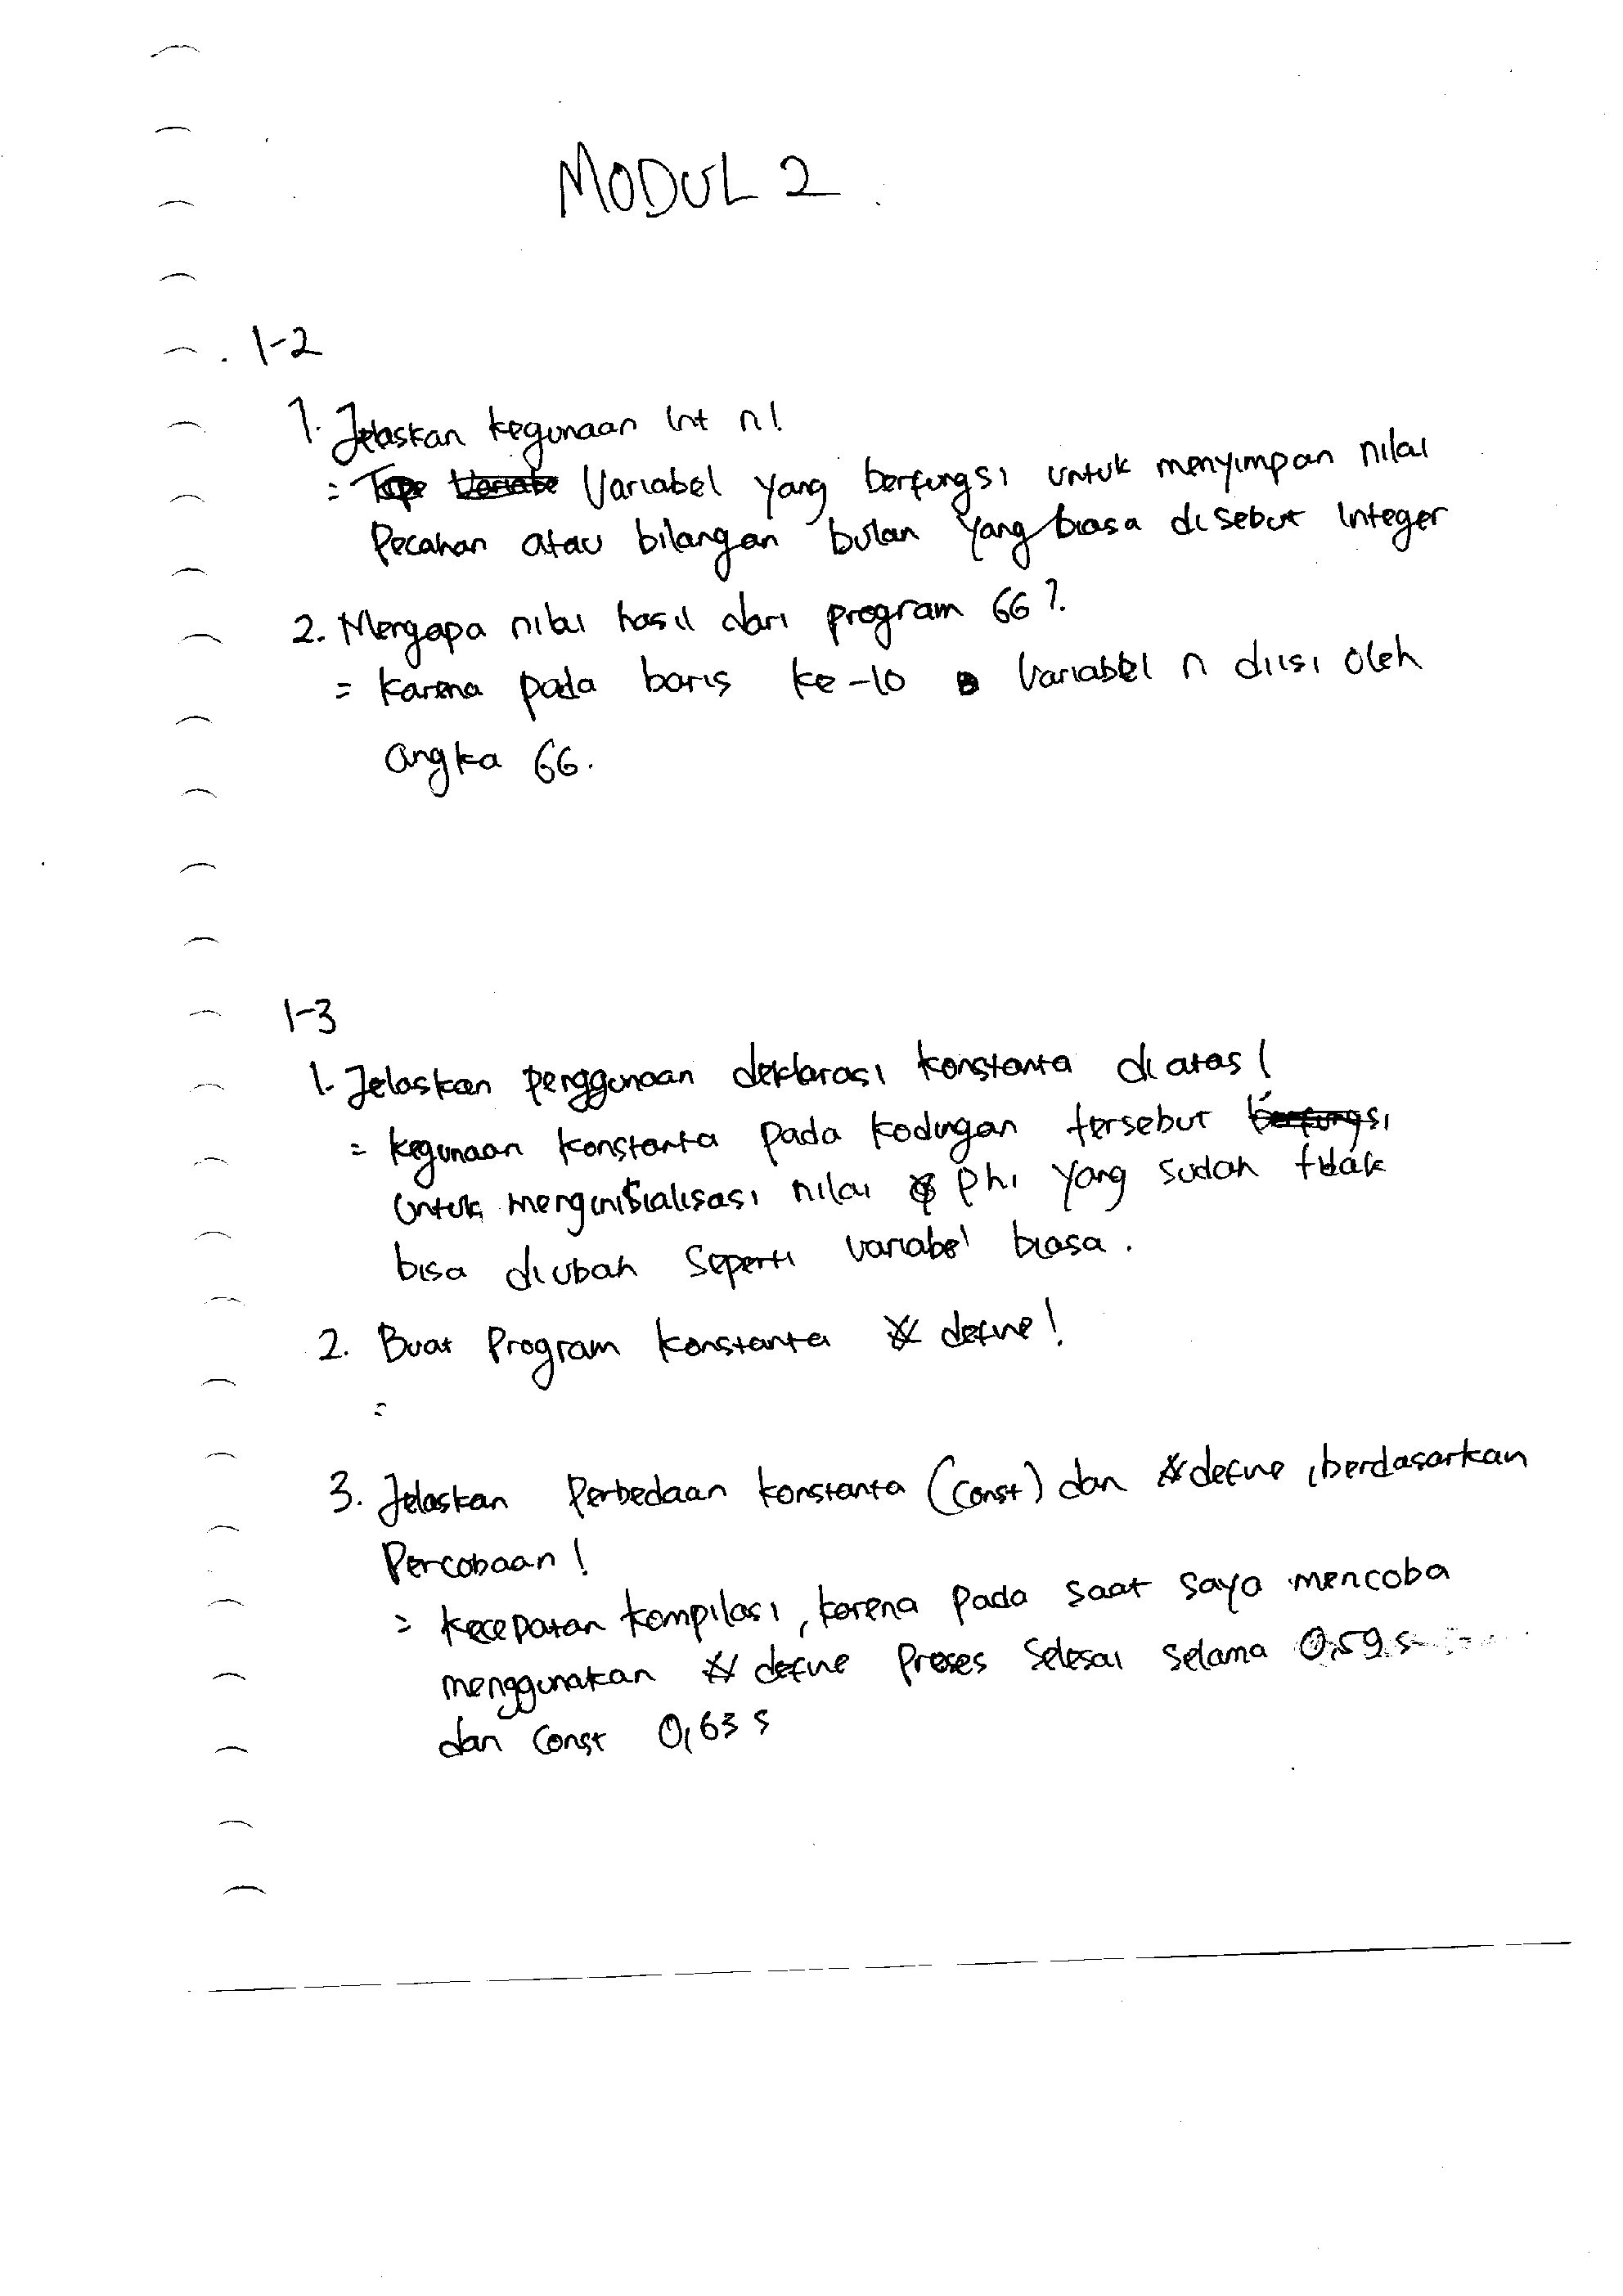 MODUL 2
1-2
1. Jelaskan kegunaan int n!
= Variabel yang berfungsi untuk menyimpan nilai
Pecahan atau bilangan bulan yang biasa disebut Integer
2. Mengapa nilai hasil dari program 66?
= Karena pada baris ke-10 Variabel n diisi oleh
angka 66.
1-3
1. Jelaskan penggunaan deklarasi konstanta di atas!
= kegunaan konstanta pada kodingan tersebut berfungsi
untuk menginisialisasi nilai phi yang sudah tidak
bisa diubah seperti variabel biasa.
2. Buat Program konstanta # define!
=
3. Jelaskan Perbedaan konstanta (const) dan # define, berdasarkan
Percobaan!
= kecepatan kompilasi, karena pada saat saya mencoba
menggunakan # define Proses selesai selama 0,59 s
dan const 0,63 s